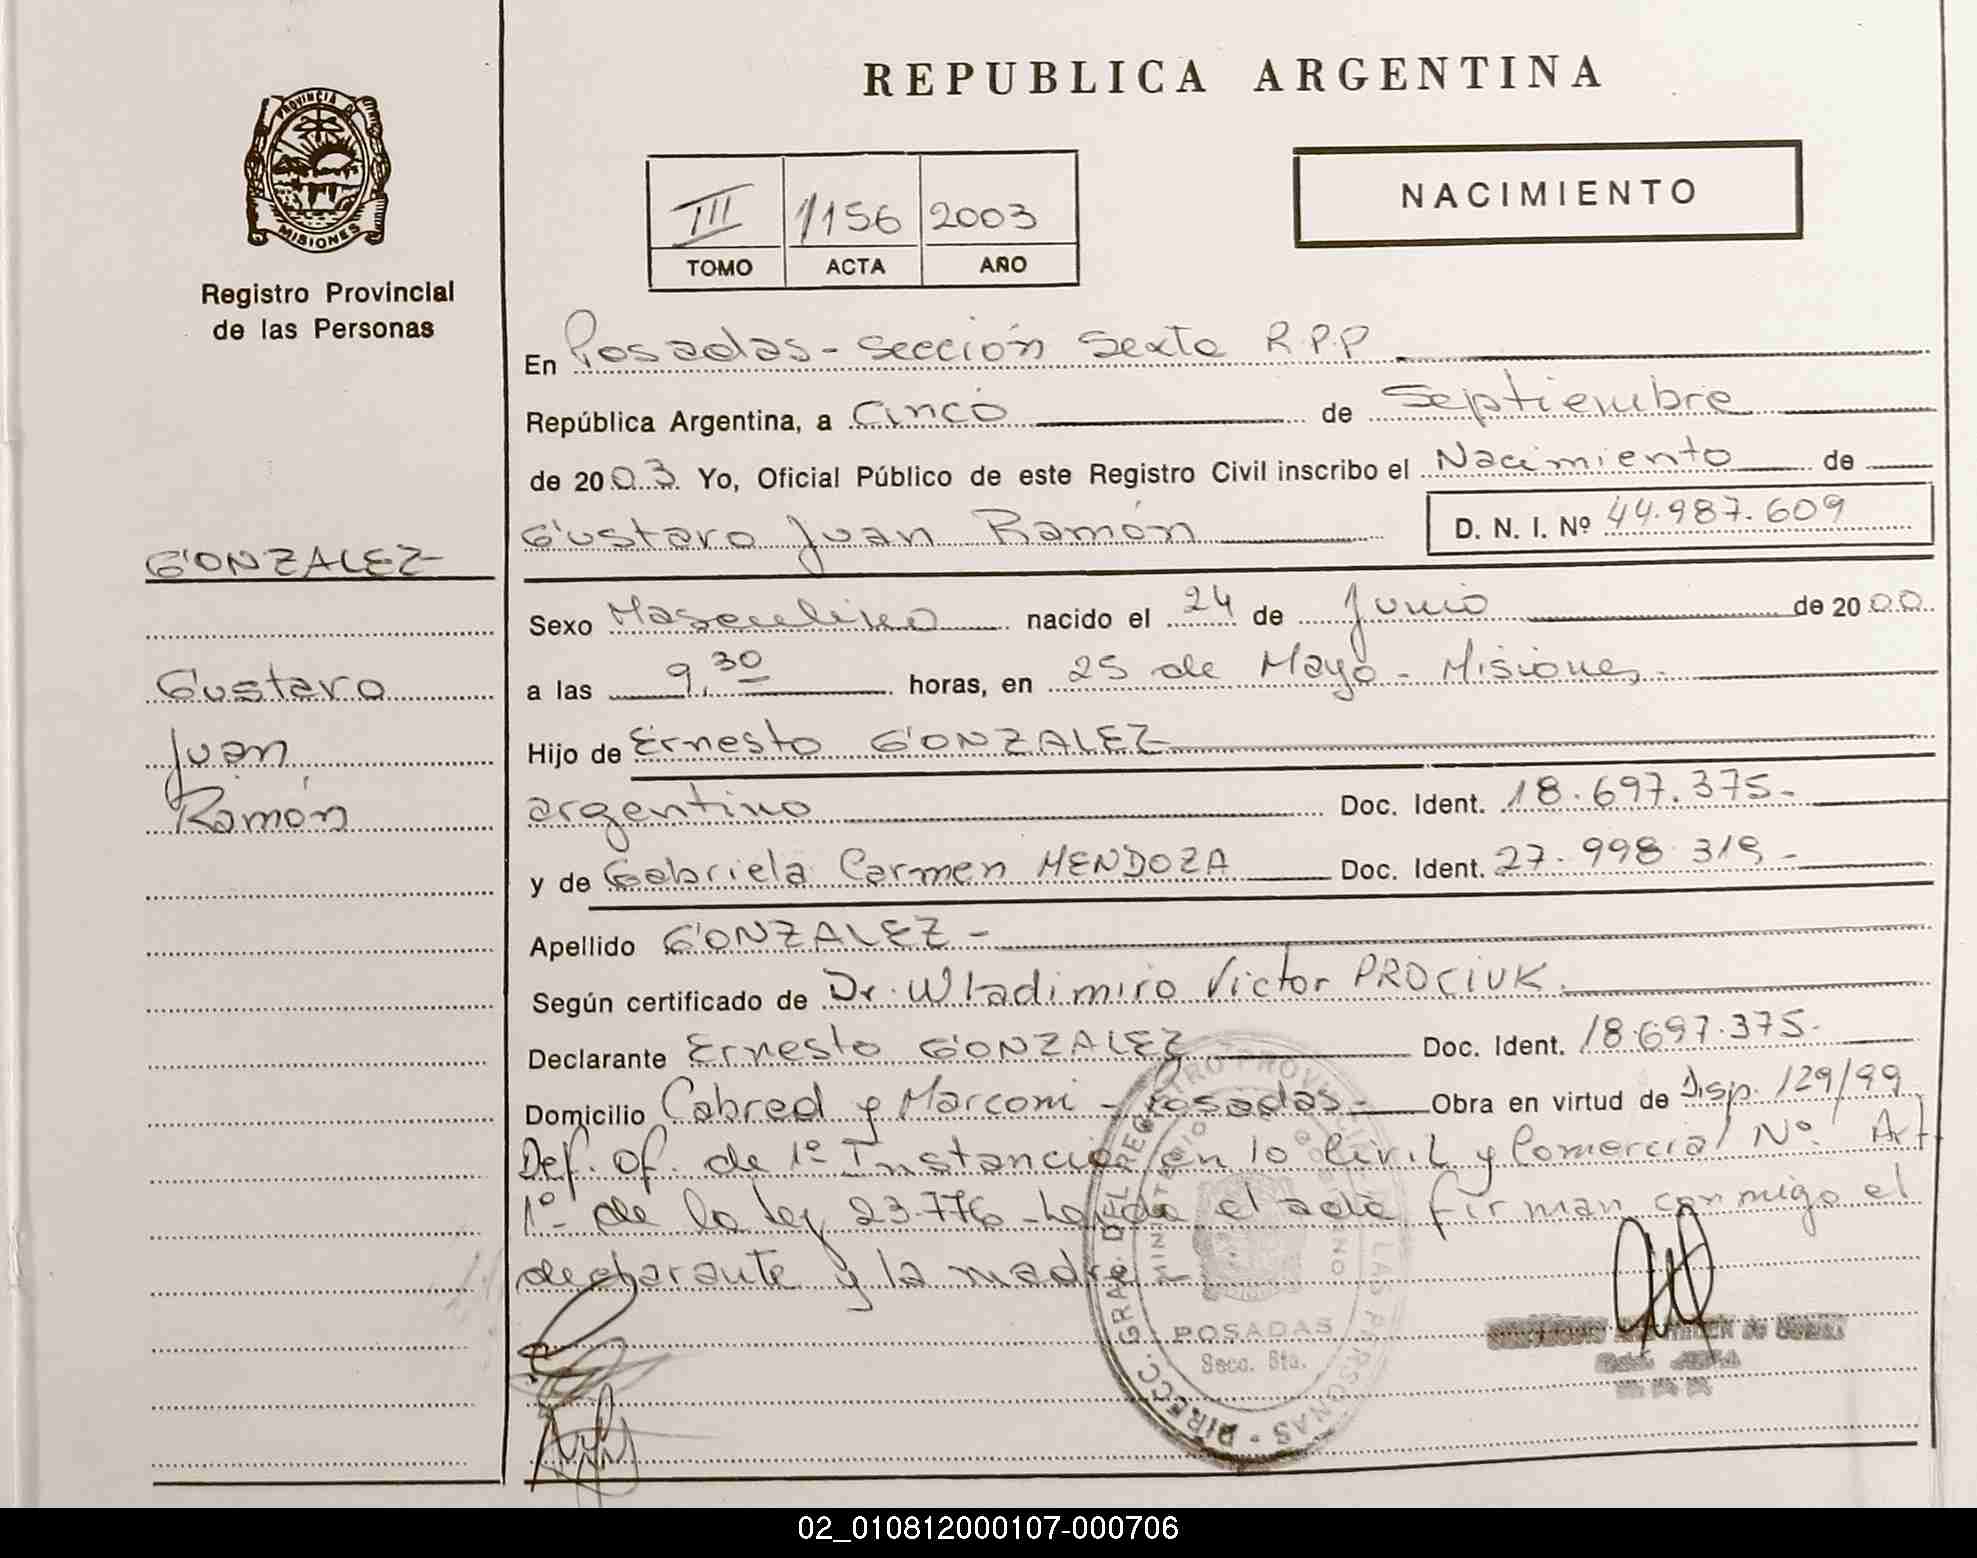 REPUBLICA ARGENTINA
PROVINCIA DE
MISIONES
Registro Provincial
de las Personas
III 1156 2003
TOMO ACTA AÑO
NACIMIENTO
En Posadas - sección Sexta R.P.P
República Argentina, a Cinco de Septiembre
de 2003. Yo, Oficial Público de este Registro Civil inscribo el Nacimiento de
Gustavo Juan Ramón D. N. I. Nº 44.987.609
GONZALEZ
Gustavo
Juan
Ramón
Sexo Masculino nacido el 24 de Junio de 2000
a las 9,30 horas, en 25 de Mayo - Misiones.
Hijo de Ernesto GONZALEZ
argentino Doc. Ident. 18.697.375-
y de Gabriela Carmen MENDOZA Doc. Ident. 27.998.319-
Apellido GONZALEZ -
Según certificado de Dr. Wladimiro Victor PROCIUK.
Declarante Ernesto GONZALEZ Doc. Ident. 18.697.375-
Domicilio Cabred y Marconi - Posadas- Obra en virtud de Disp. 129/99
Def. Of. de 1º Instancia en lo Civil y Comercial Nº 1 Art
1º- de la ley 23.776 - Leída el acta firman conmigo el
declarante y la madre -
DIRECC. GRAL. DEL REGISTRO PROVINCIAL DE LAS PERSONAS
POSADAS
Secc. 6ta.
02_010812000107-000706